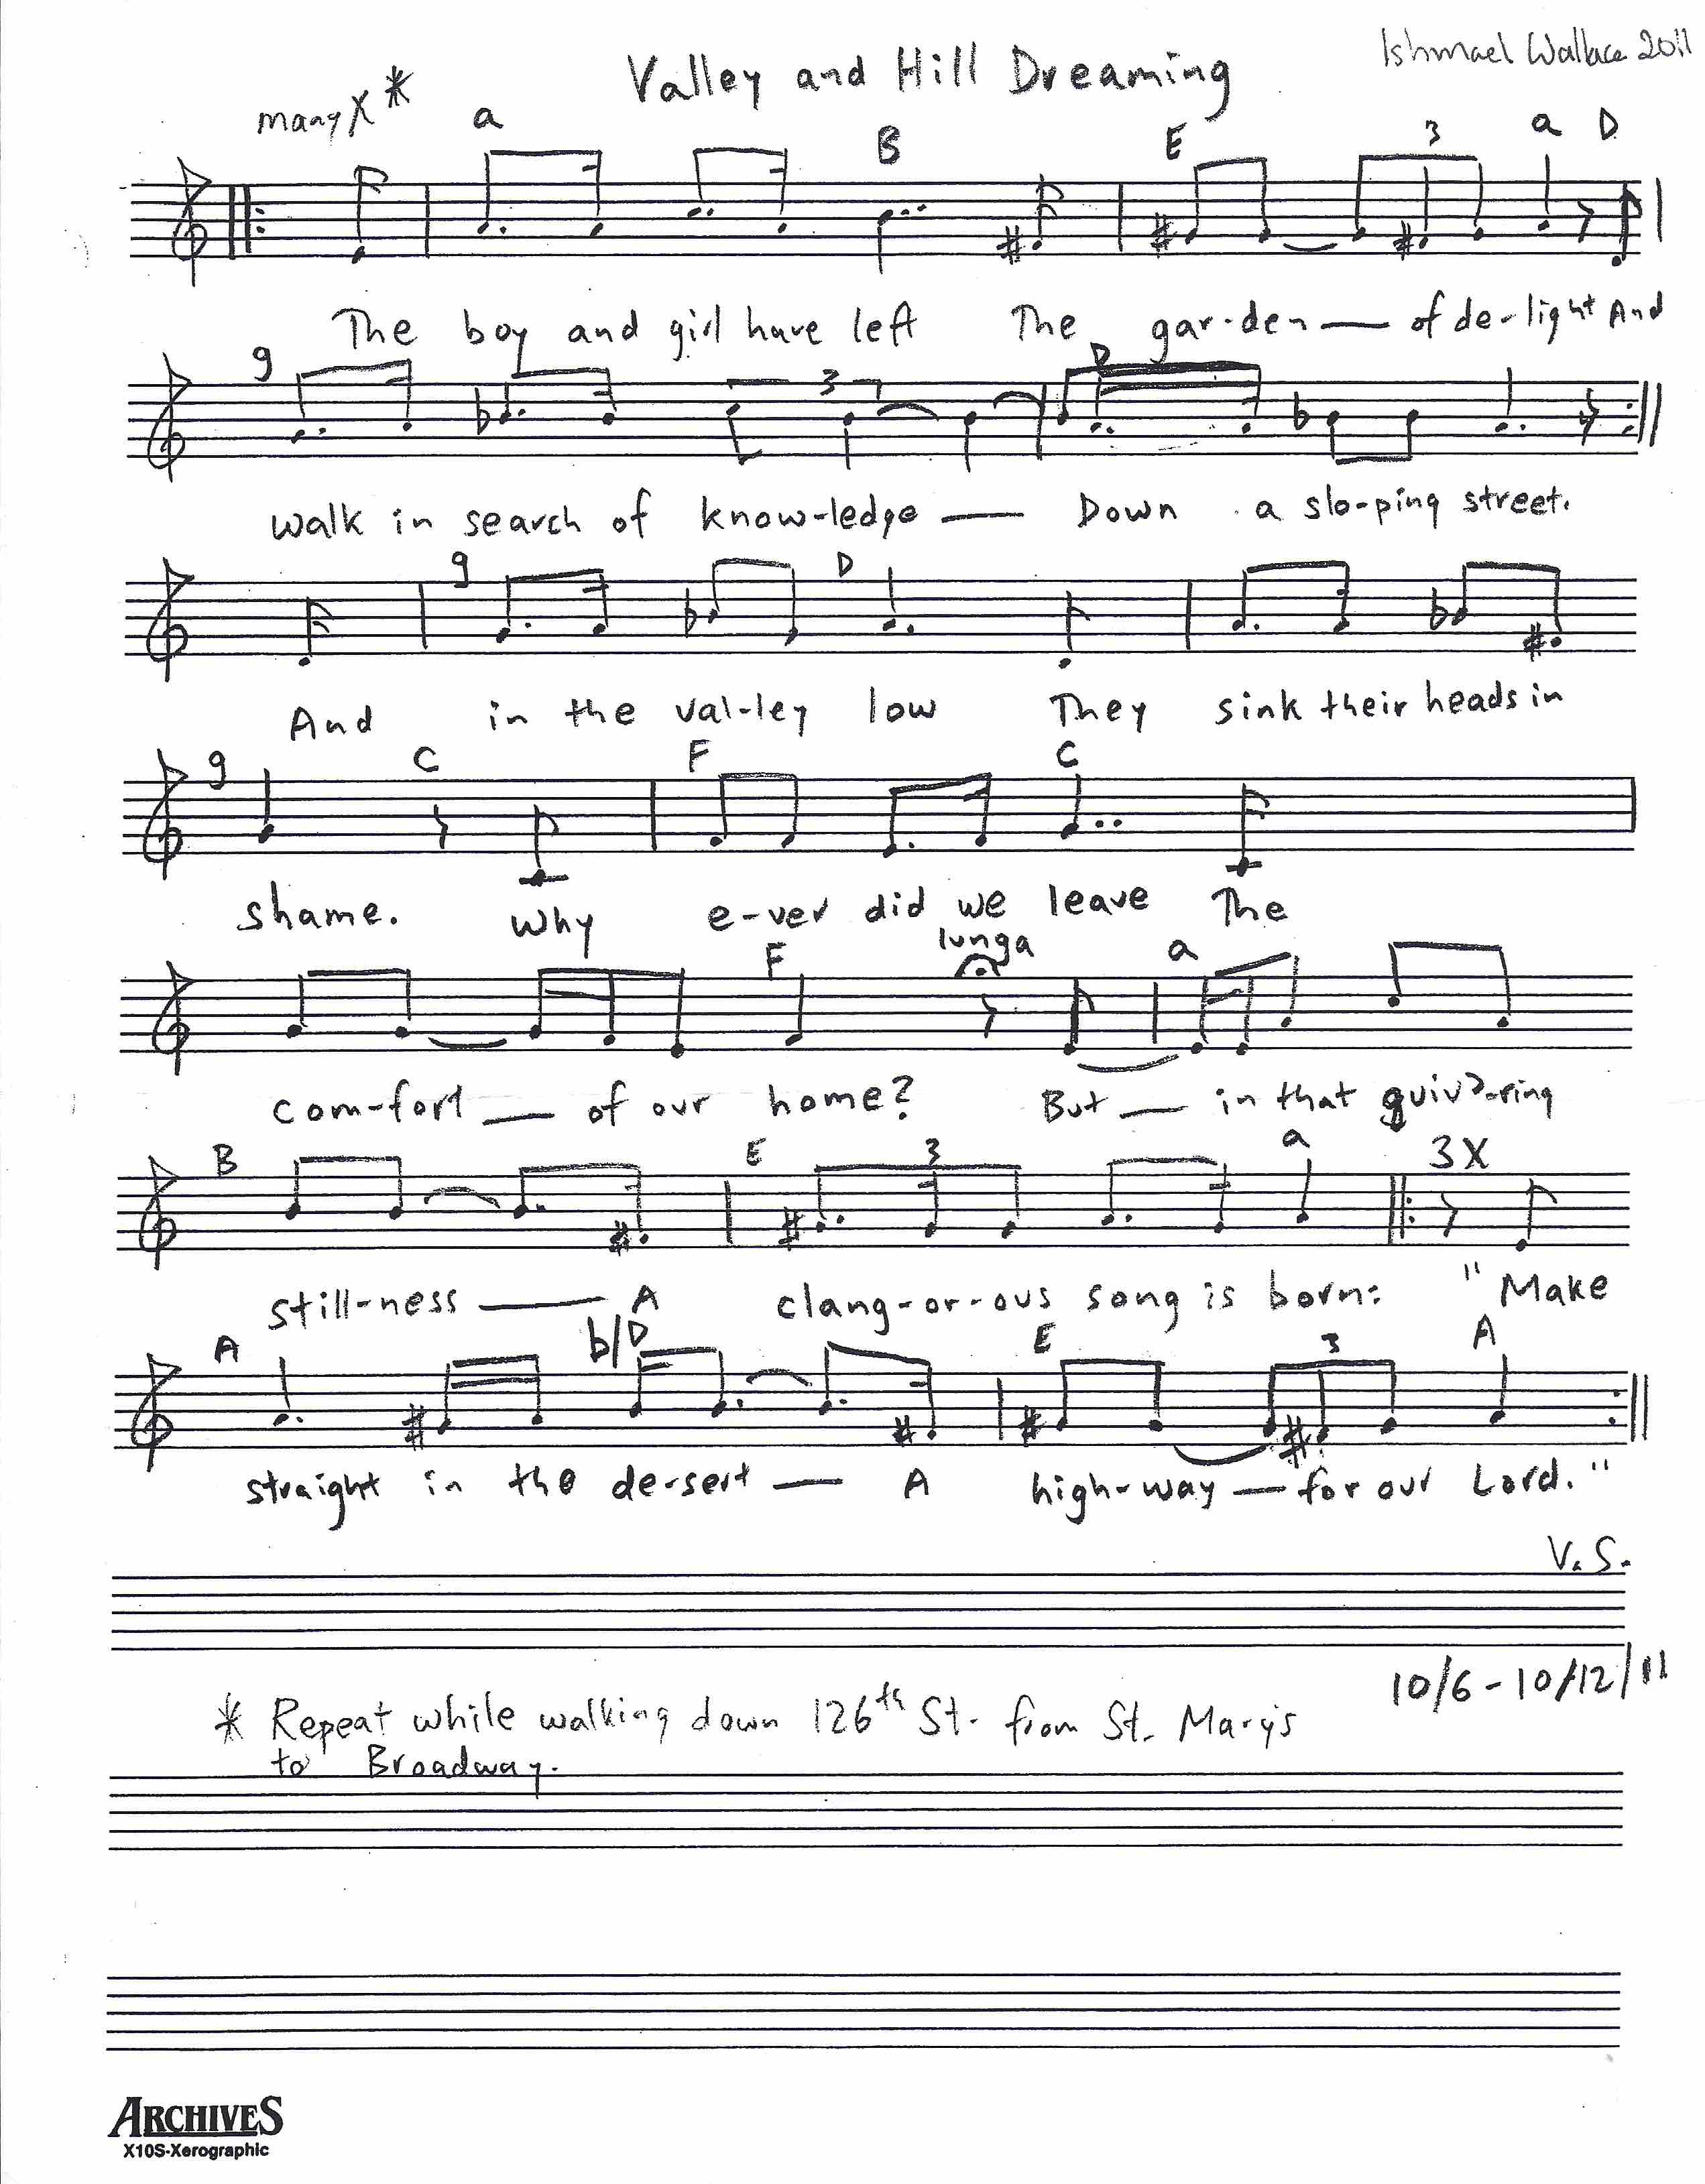 Ishmael Wallace 2011
Valley and Hill Dreaming
many X *
a B E 3 a D
The boy and girl have left The gar-den — of de-light And
g 3 D
walk in search of know-ledge — Down a slo-ping street.
g D
And in the val-ley low They sink their heads in
g C F C
shame. Why e-ver did we leave The
F lunga a
com-fort — of our home? But — in that quiv'-ring
B E 3 a 3X
still-ness — A clang-or-ous song is born: "Make
A b/D E 3 A
straight in the de-sert — A high-way — for our Lord."
V. S.
10/6 - 10/12/11
* Repeat while walking down 126th St. from St. Mary's
to Broadway.
ARCHIVES
X10S-Xerographic